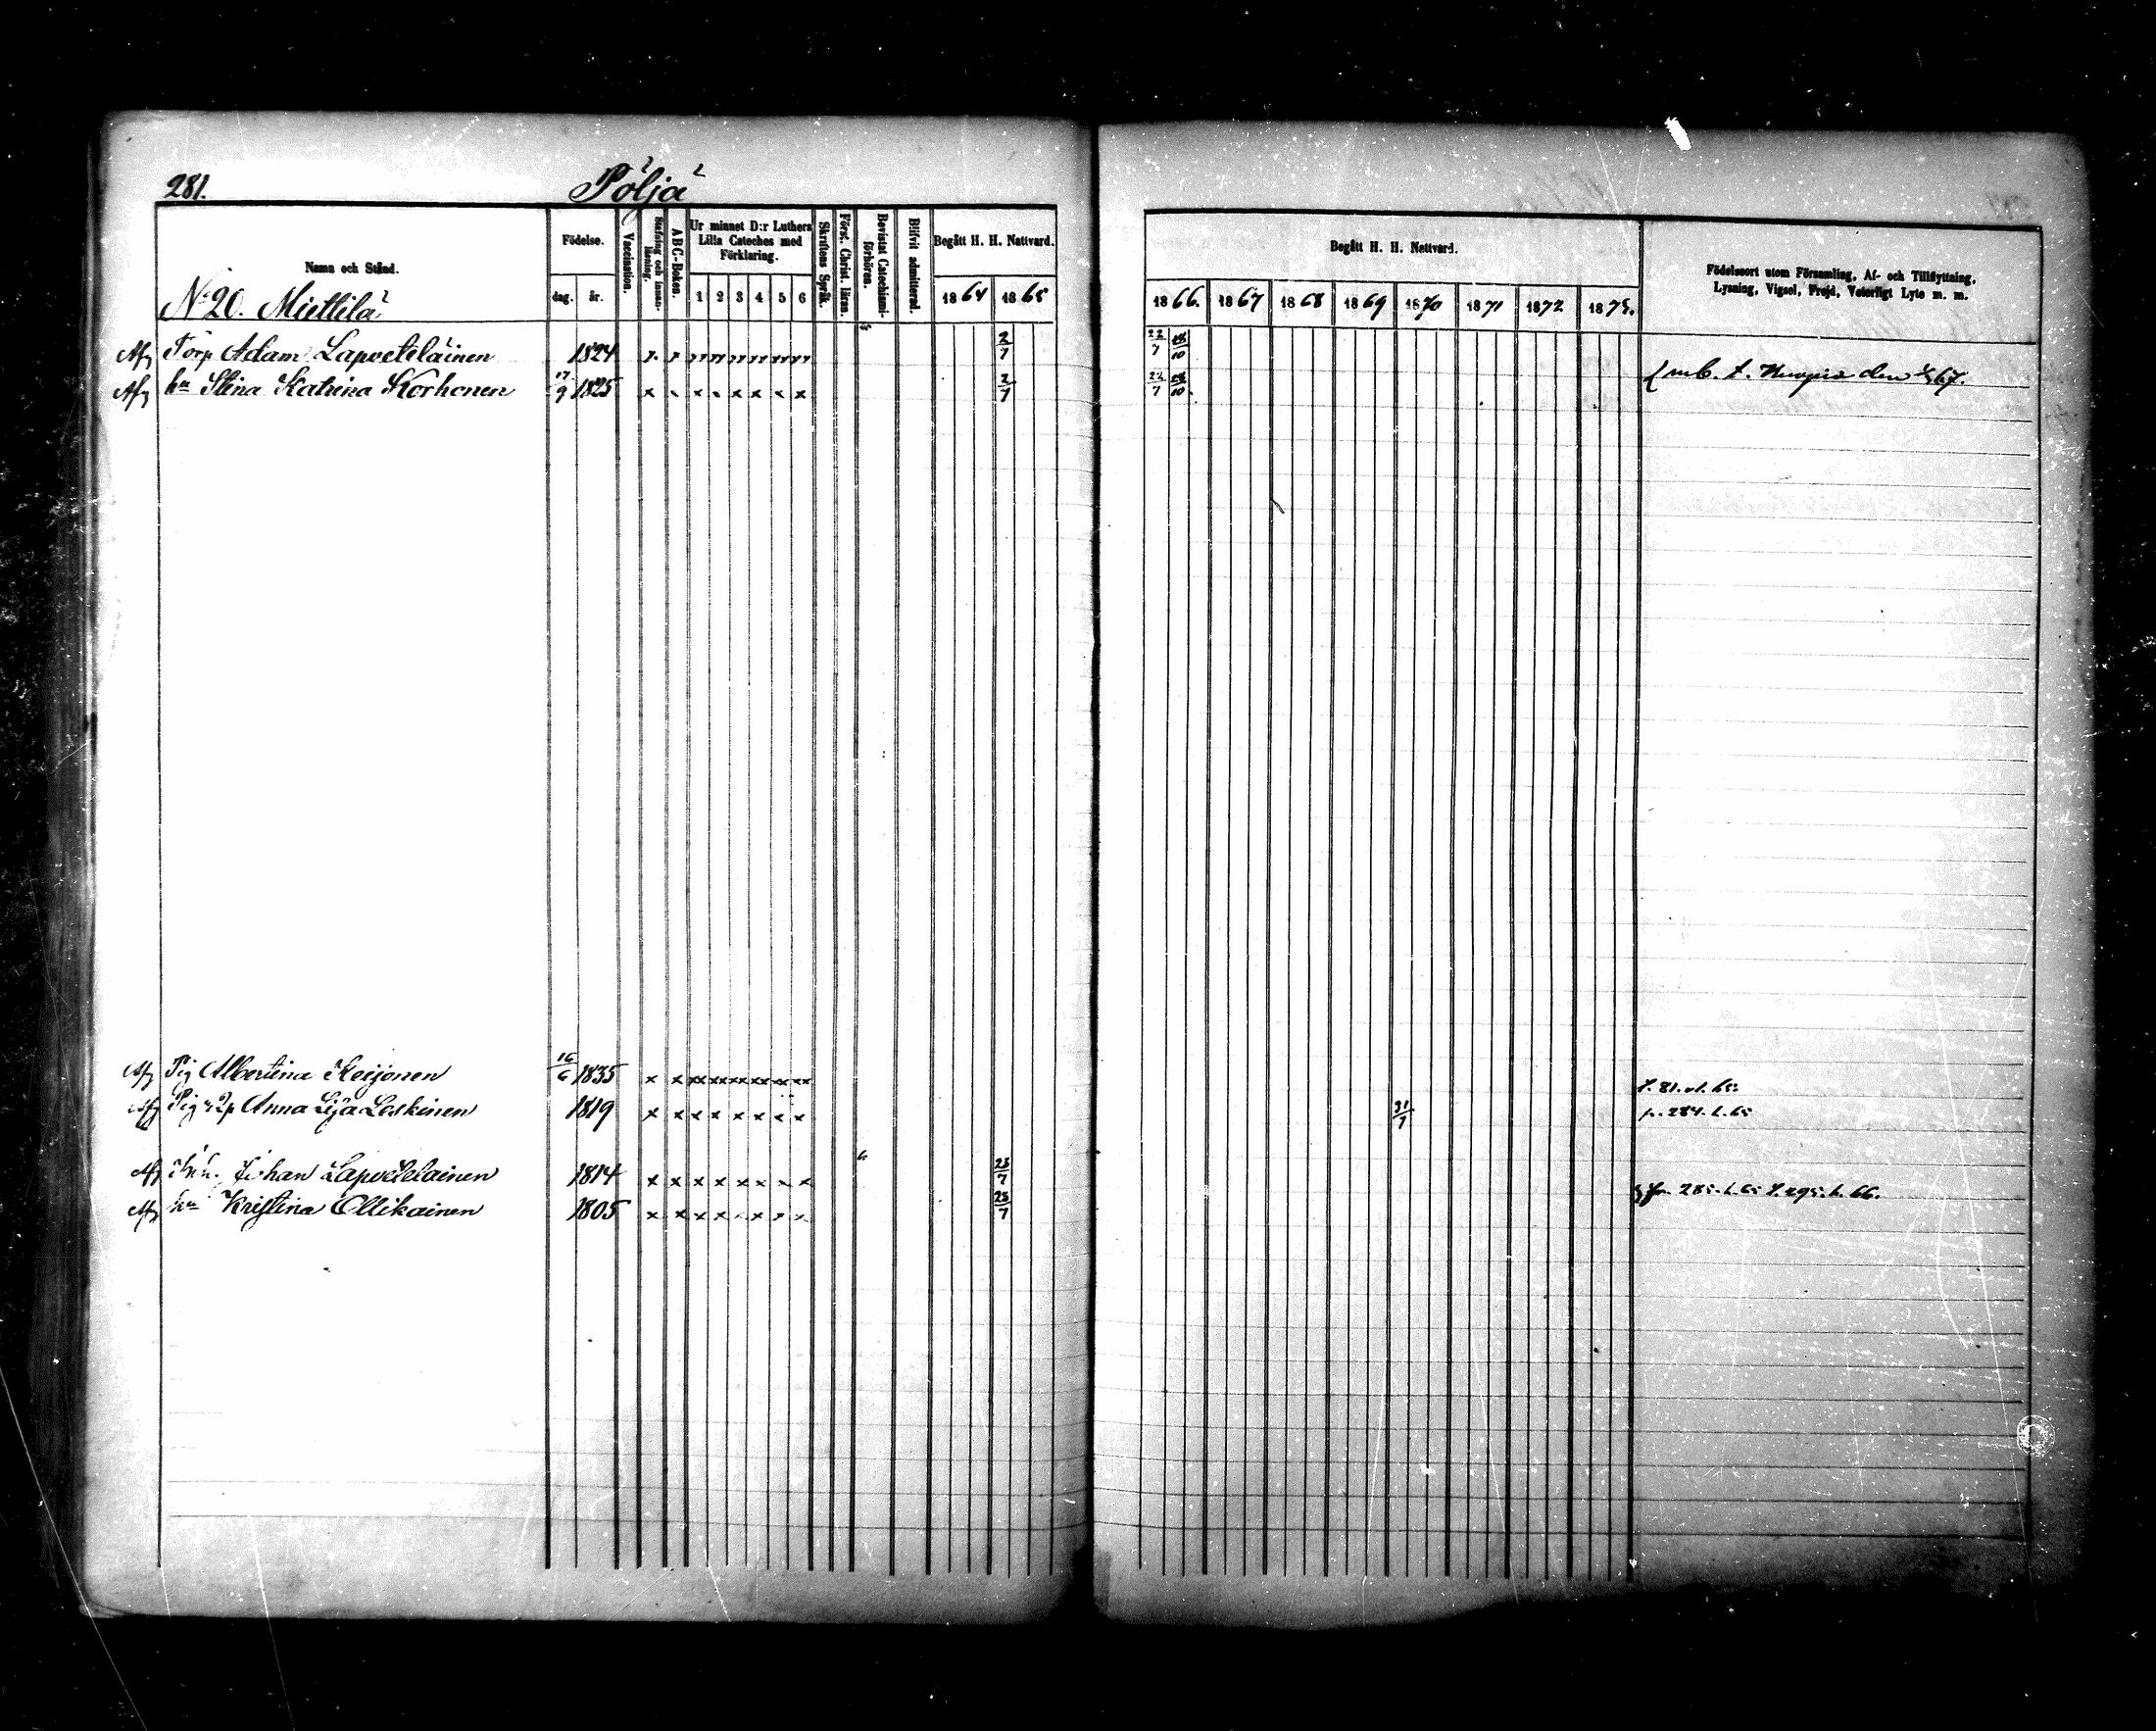 281. Pöljä
Namn och Stånd.
Födelse.
dag. år.
Vaccination.
Stafning och innanläsning.
A B C-Boken.
Ur minnet D:r Luthers Lilla Cateches med Förklaring.
1 2 3 4 5 6
Skriftens Språk.
Först. Christ. läran.
Bevistat Catechismi-förhören.
Blifvit admitterad.
Begått H. H. Nattvard.
1864 1865
Begått H. H. Nattvard.
1866. 1867 1868 1869 1870 1871 1872 1873.
Födelseort utom Församling, Af- och Tillflyttning, Lysning, Vigsel, Frejd, Veterligt Lyte m. m.
No 20. Miettilä
Afg Torp Adam Lapveteläinen 1824 2/7 22/7 /10
Afg hu Stina Katrina Korhonen 17/9 1825 x x x x x x x 2/7 22/7 /10 den 67.
Afg Pig Albertina Keijonen 16/6 1835 x x xx xx xx xx xx xx 81. 65
Afg Pig Anna Leskinen 1819 x x x x x x x x 31/7 284. 65
Afg Johan Lapveteläinen 1814 x x x x x x x x 23/7
Afg hu Kristina Ollikainen 1805 x x x x x x x x 23/7 285. 65 295. 66.